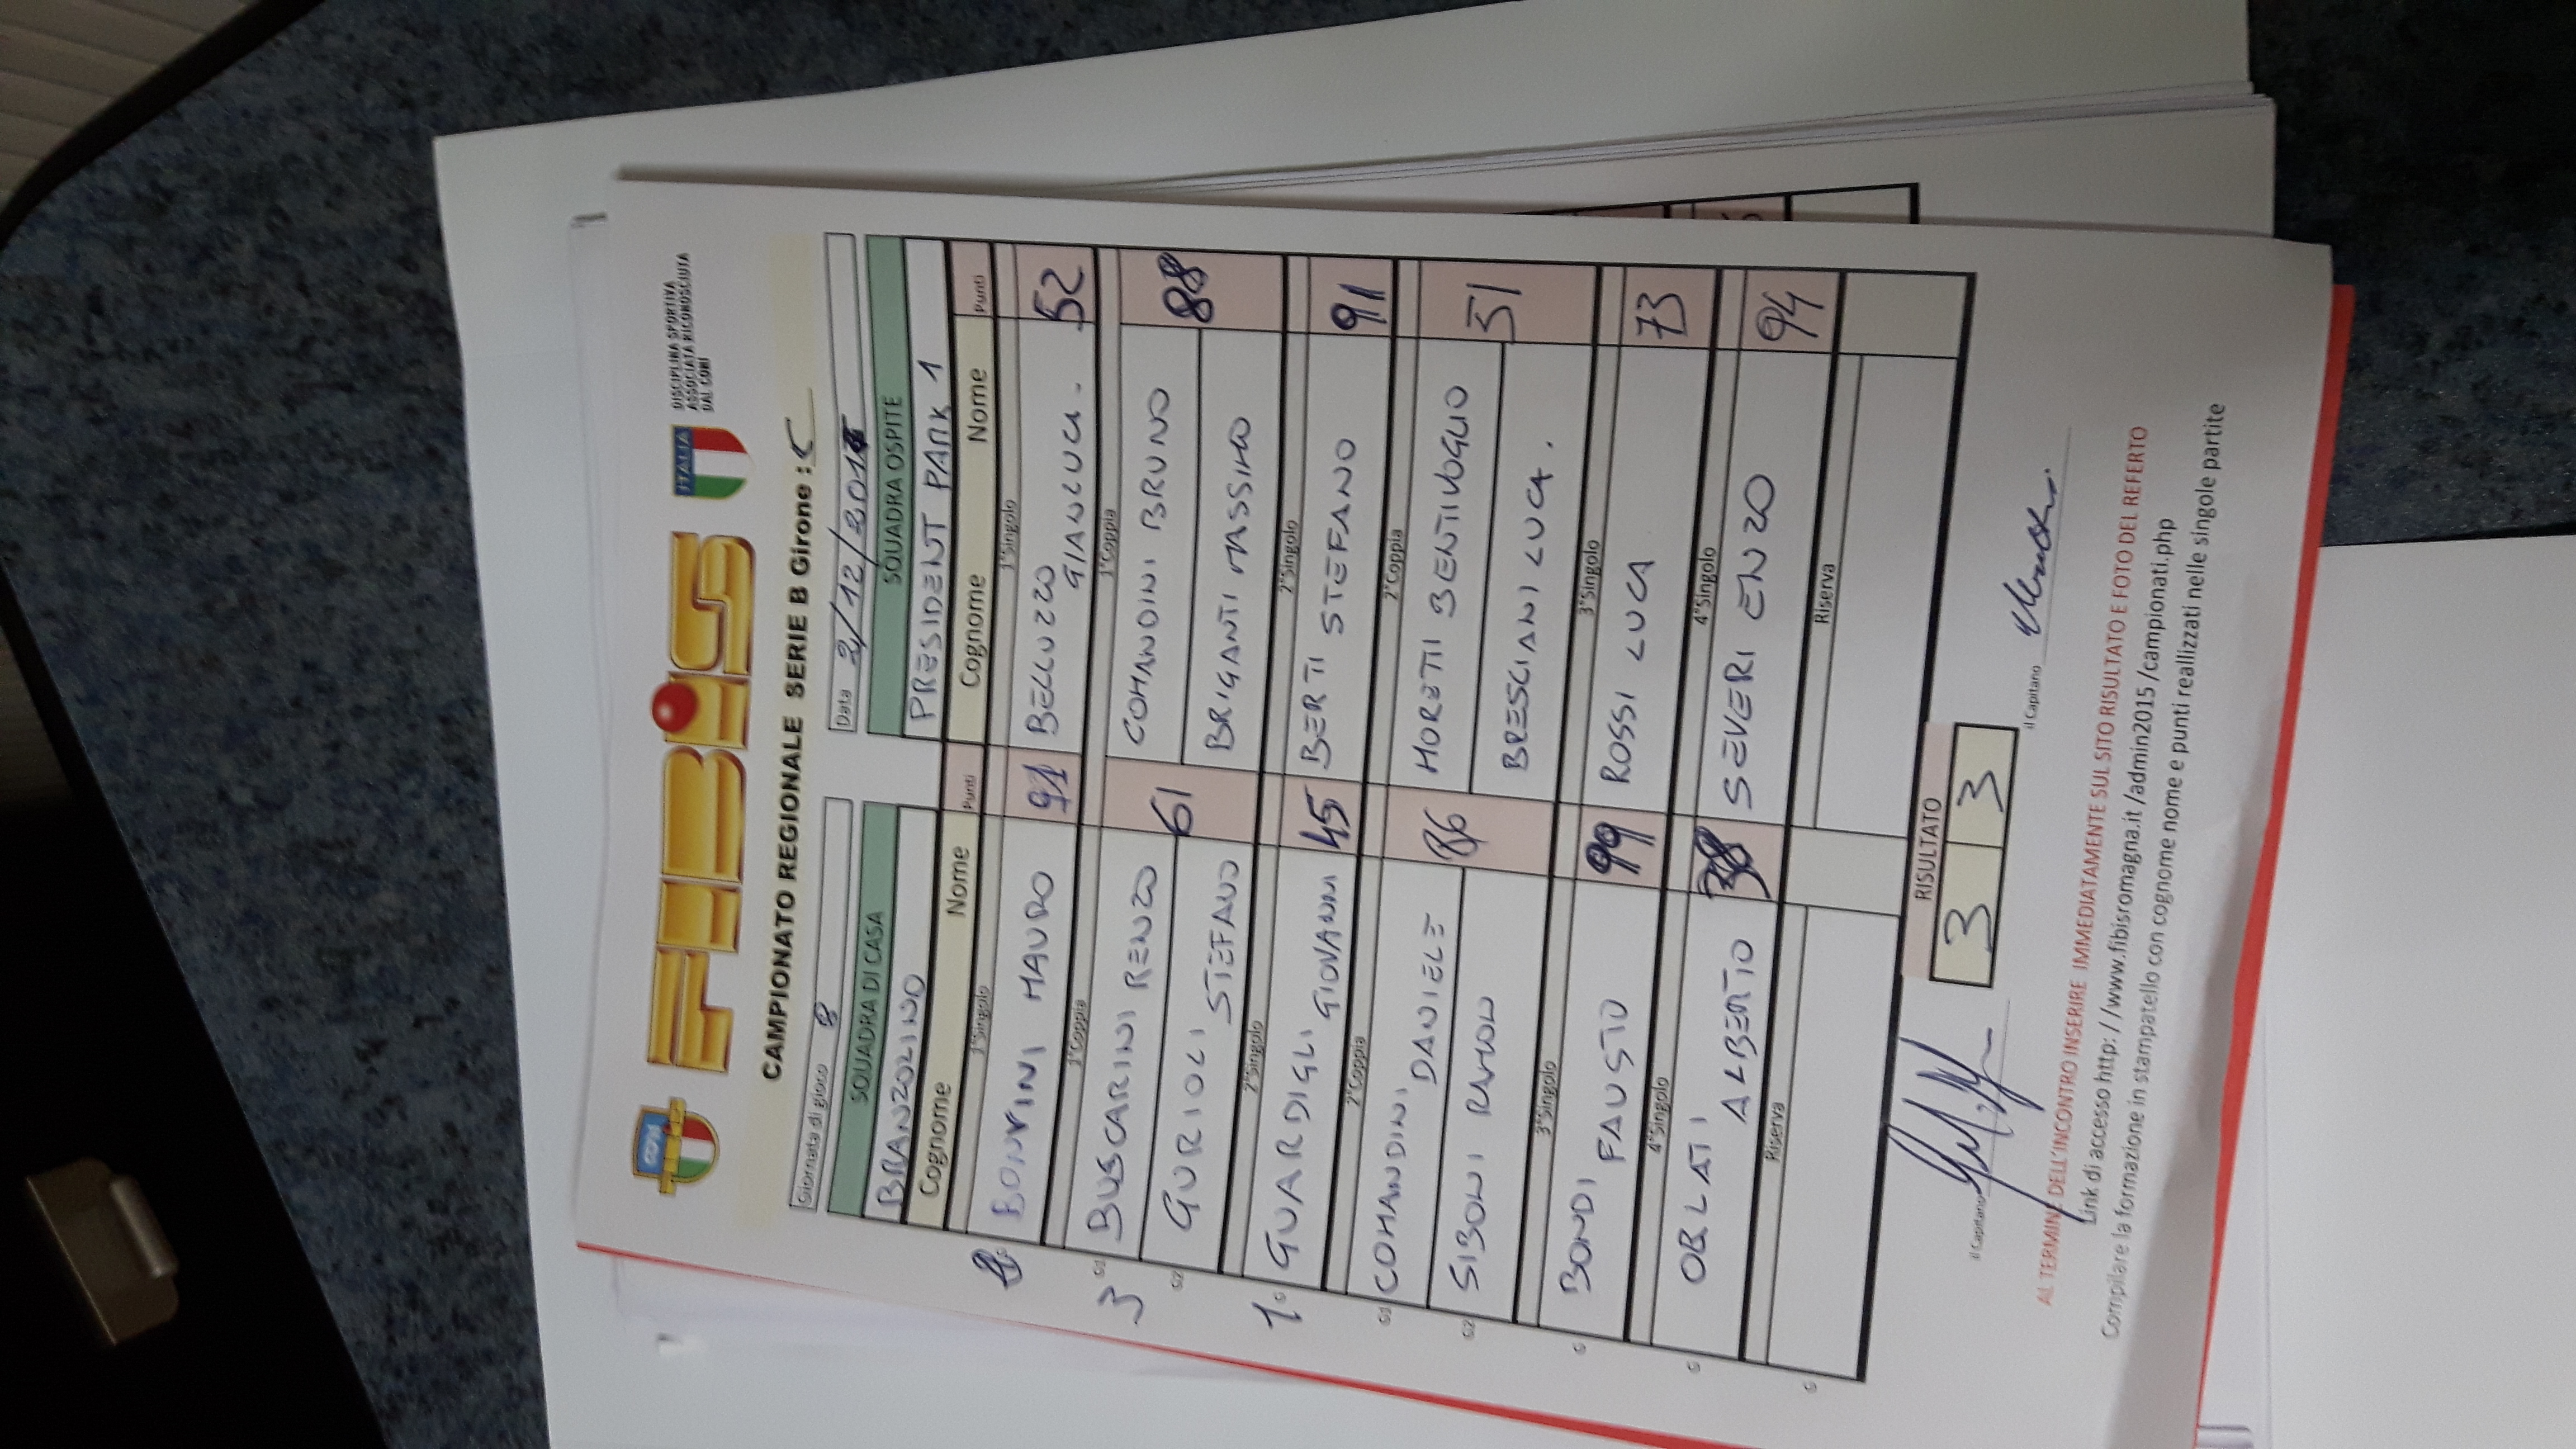 CONI
FIBiS
ITALIA
DISCIPLINA SPORTIVA
ASSOCIATA RICONOSCIUTA
DAL CONI
CAMPIONATO REGIONALE SERIE B Girone : C
Giornata di gioco 8
Data 2/12/201
SQUADRA DI CASA
SQUADRA OSPITE
BRANZOLINO
PRESIDENT PARK 1
Cognome Nome Punti
Cognome Nome Punti
1°Singolo
1°Singolo
C BONVINI MAURO 91
BELLUZZO
GIANLUCA. 52
1°Coppia
1°Coppia
3
C1 BUSCARINI RENZO 61
COMANDINI BRUNO 88
C2 GURIOLI
STEFANO
BRIGANTI MASSIMO
2°Singolo
2°Singolo
1 C GUARDIGLI
GIOVANNI 45
BERTI STEFANO 91
2°Coppia
2°Coppia
C1 COMANDINI
DANIELE 86
MORETTI BENTIVOGLIO 51
C2 SIBONI RAMON
BRESCIANI LUCA.
3°Singolo
3°Singolo
C BONDI
FAUSTO 99
ROSSI LUCA 73
4°Singolo
4°Singolo
C ORLATI
ALBERTO 38
SEVERI ENZO 94
Riserva
Riserva
C
RISULTATO
3 3
il Capitano
il Capitano
AL TERMINE DELL'INCONTRO INSERIRE IMMEDIATAMENTE SUL SITO RISULTATO E FOTO DEL REFERTO
Link di accesso http: //www.fibisromagna.it /admin2015 /campionati.php
Compilare la formazione in stampatello con cognome nome e punti reallizzati nelle singole partite